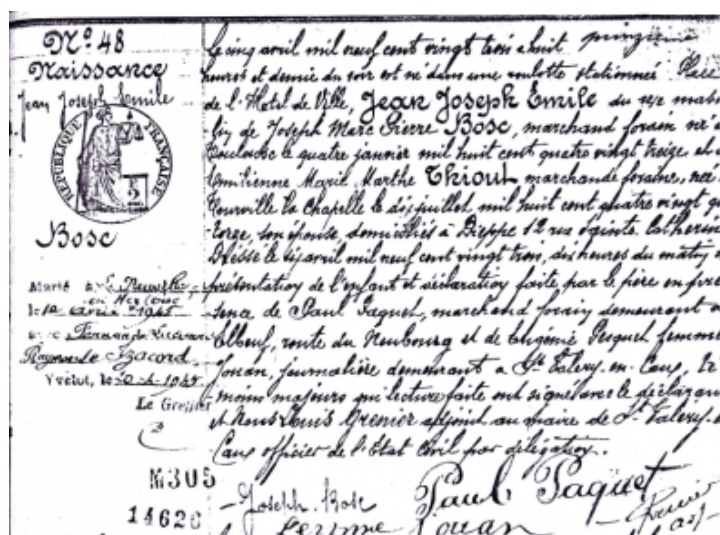 No 48
Naissance
Jean Joseph Emile
RÉPUBLIQUE FRANÇAISE
Bosc
Marié à
le 10 avril 1945
avec
Yvetot, le 20-4-1945
Le Greffier
N305
14620
Le cinq avril mil neuf cent vingt trois à huit
heures et demie du soir est né dans une roulotte stationnée Place
de l'Hotel de Ville, Jean Joseph Emile du sexe mas
lin de Joseph Marc Pierre Bosc, marchand forain né à
Toulouse le quatre janvier mil huit cent quatre vingt treize et
Emilienne Marie Marthe Thiout marchande foraine, née
Tourville la Chapelle le dix juillet mil huit cent quatre vingt qua
torze, son épouse, domiciliés à Dieppe 12 rue Sainte Catherine
Dressé le six avril mil neuf cent vingt trois, dix heures du matin
présentation de l'enfant et déclaration faite par le père en pré
sence de Paul Paquet, marchand forain demeurant
Elbeuf, route du Neubourg et de Eugénie Pesquet femme
Jouan, journalière demeurant à St Valery-en-Caux, té
moins majeurs qui lecture faite ont signé avec le déclarant
et Nous Louis Grenier adjoint au maire de St Valery
Caux officier de l'Etat Civil par délégation.
Joseph Bosc Paul Paquet
Jouan